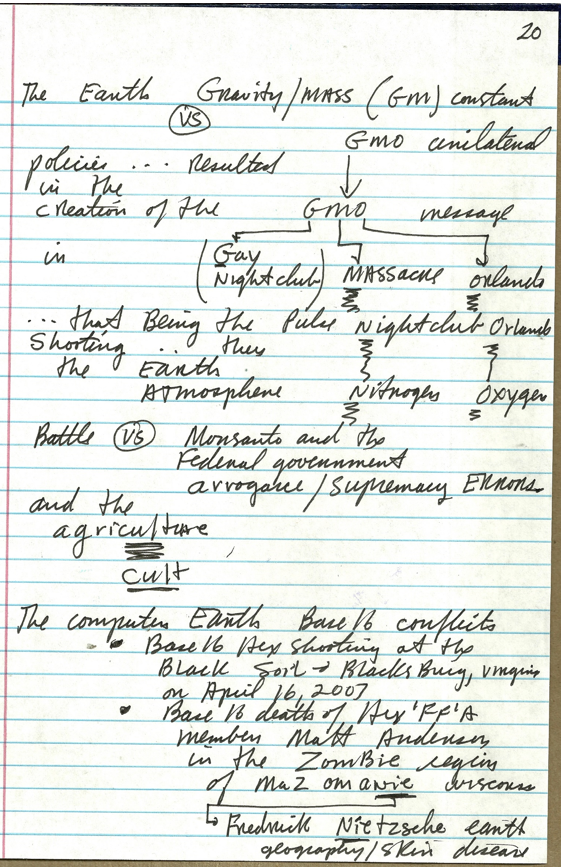 20
The Earth Gravity/MASS (GM) constant
VS
GMO unilateral
policies ... resulted
in the
creation of the GMO message
in (Gay Nightclub) MASSacre Orlando
... that Being the Pulse Nightclub Orlando
Shooting ... then
the EARTH
ATmosphere Nitrogen Oxygen
Battle VS Monsanto and the
Federal government
arrogance/Supremacy ERRORS
and the
agriculture
cult
The computer Earth Base 16 conflicts
• Base 16 Hex shooting at the
Black Soil → BlacksBurg, Virginia
on April 16, 2007
• Base 16 death of Hex 'FF'A
member Matt Anderson
in the ZomBie region
of MaZomanie Wisconsin
Fredrick Nietzsche earth
geography/skin disease